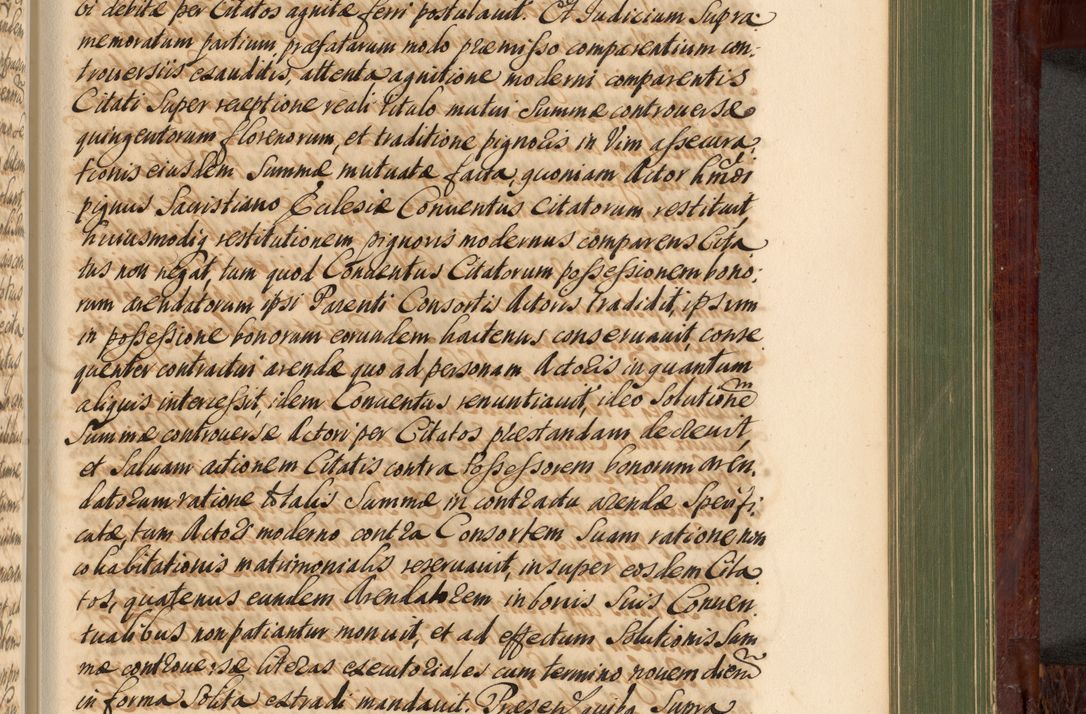 vi debitæ per Citatos agnitæ ferri postulavit. Et Judicium Supra
memoratum partium præfatarum modo præmisso comparentium con-
trouersiis exauditis, attenta agnitione moderni comparentis
Citati Super receptione reali titulo mutui Summæ controuersæ
quingentorum florenorum, et traditione pignoris in Vim assecura-
tionis eiusdem Summæ mutuatæ facta, quoniam Actor hmdi
pignus Sacristiano Eclesiæ Conuentus Citatorum restituit,
huiusmodiq restitutionem pignoris modernus comparens Cita
tus non negat, tum quod Conuentus Citatorum possessionem bono-
rum arendatorum ipsi Parenti Consortis Actoris tradidit, ipsum
in possessione bonorum eorundem hactenus conseruauit, conse
quenter contractui arendæ quo ad personam Actoris in quantum
aliquis intercessit, idem Conuentus renuntiauit, ideo Solutionem
Summæ controuersæ Actori per Citatos præstandam decreuit,
et Saluam actionem Citatis contra Possessorem bonorum aren-
datorum ratione totalis Summæ in contractu arendæ Specifi
catæ, tum Actori moderno contra Consortem Suam ratione non
cohabitationis matrimonialis reseruauit, insuper eosdem Cita
tos, quatenus eundem Arendatorem in bonis Suis Conuen-
tualibus non patiantur monuit, et ad effectum Solutionis Sum
mæ controuersæ literas executoriales cum termino nouem dierum
in forma Solita extradi mandauit. Presen Supra